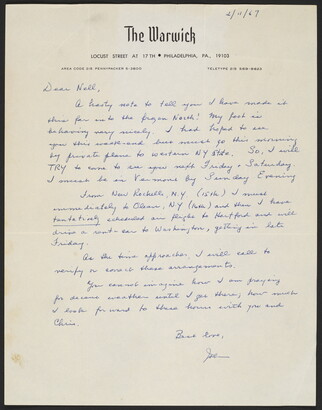 2/11/67
The Warwick
LOCUST STREET AT 17TH • PHILADELPHIA, PA., 19103
AREA CODE 215 PENNYPACKER 5-3800 TELETYPE 215
Dear Nell,
A hasty note to tell you I have made it
thus far into the frozen North! My foot is
behaving very nicely. I had hoped to see
you this week-end, but must go this morning
by private plane to western NY State. So, I will
TRY to come to see you next Friday & Saturday.
I must be in by Sunday Evening
From New Rochelle, N.Y. (15th) I must
immediately to Olean, NY (16th) and then I have
tentatively scheduled air flight to Hartford and will
drive a rent-car to Washington, getting in late
Friday.
As the time approaches, I will call to
verify or correct these arrangements.
You cannot imagine how I am praying
for decent weather until I get there; how much
I look forward to these hours with you and
Chris.
Best love,